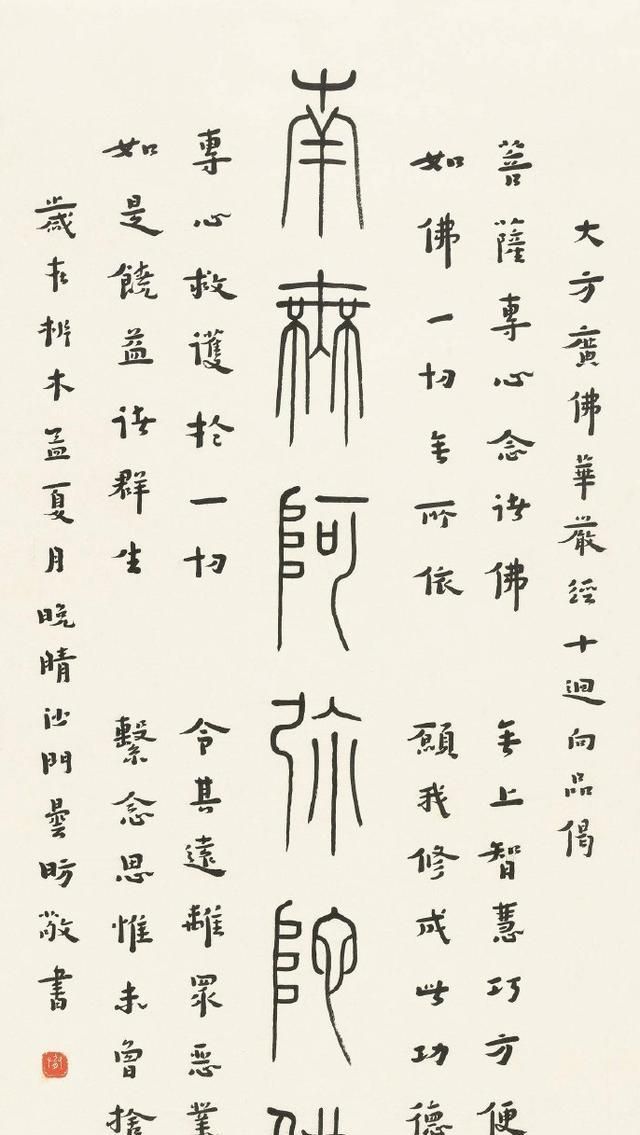 大方廣佛華嚴經十迴向品偈
菩薩專心念諸佛 無上智慧巧方便
如佛一切無所依 願我修成此功德
南無阿弥陀
專心救護於一切 令其遠離眾惡業
如是饒益諸群生 繫念思惟未曾捨
歲在析木孟夏月晚晴沙門曇昉敬書